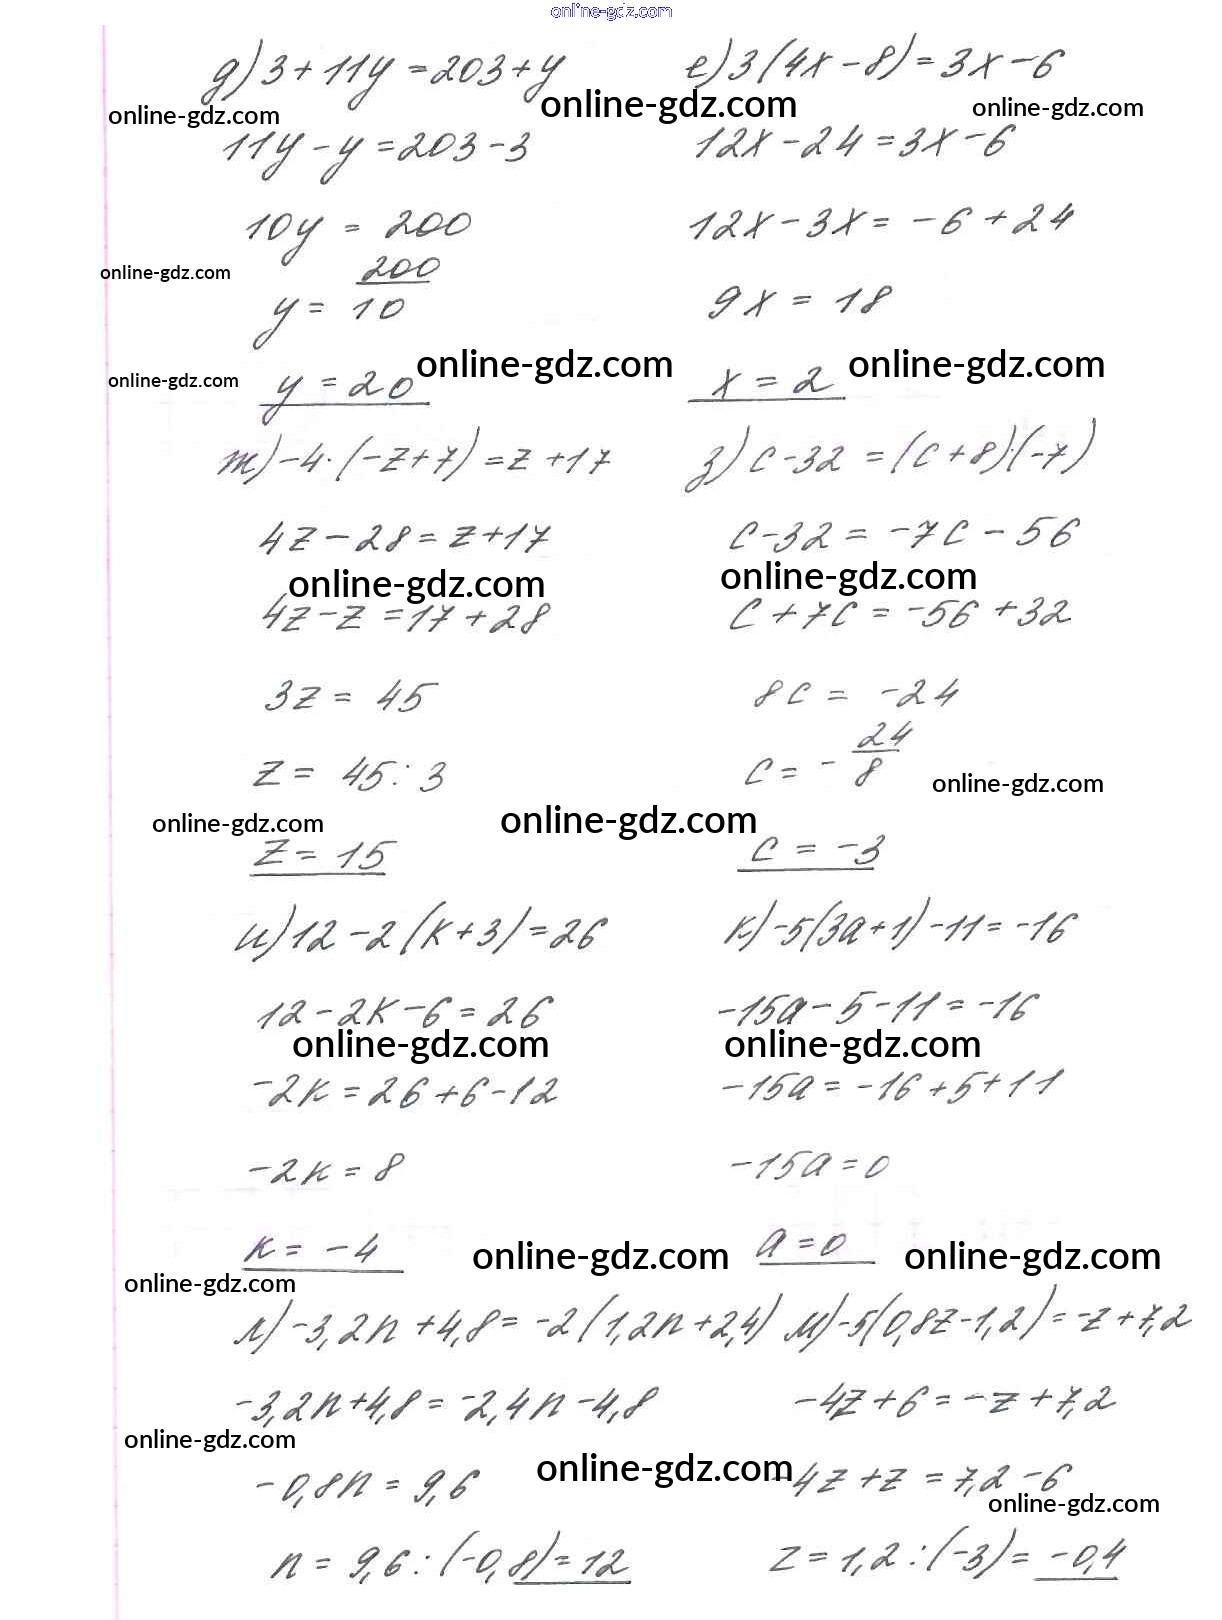 online-gdz.com
д) 3 + 11y = 203 + y
е) 3(4x - 8) = 3x - 6
online-gdz.com
online-gdz.com
online-gdz.com
11y - y = 203 - 3
12x - 24 = 3x - 6
10y = 200
12x - 3x = -6 + 24
online-gdz.com
y = 200/10
9x = 18
online-gdz.com
y = 20
online-gdz.com
x = 2
online-gdz.com
ж) -4·(-z + 7) = z + 17
з) c - 32 = (c + 8)·(-7)
4z - 28 = z + 17
c - 32 = -7c - 56
online-gdz.com
online-gdz.com
4z - z = 17 + 28
c + 7c = -56 + 32
3z = 45
8c = -24
z = 45 : 3
c = -24/8
online-gdz.com
online-gdz.com
online-gdz.com
z = 15
c = -3
и) 12 - 2(k + 3) = 26
к) -5(3a + 1) - 11 = -16
12 - 2k - 6 = 26
-15a - 5 - 11 = -16
online-gdz.com
online-gdz.com
-2k = 26 + 6 - 12
-15a = -16 + 5 + 11
-2k = 8
-15a = 0
k = -4
online-gdz.com
a = 0
online-gdz.com
online-gdz.com
л) -3,2n + 4,8 = -2(1,2n + 2,4)
м) -5(0,8z - 1,2) = -z + 7,2
-3,2n + 4,8 = -2,4n - 4,8
-4z + 6 = -z + 7,2
online-gdz.com
online-gdz.com
-0,8n = 9,6
-4z + z = 7,2 - 6
online-gdz.com
n = 9,6 : (-0,8) = 12
z = 1,2 : (-3) = -0,4